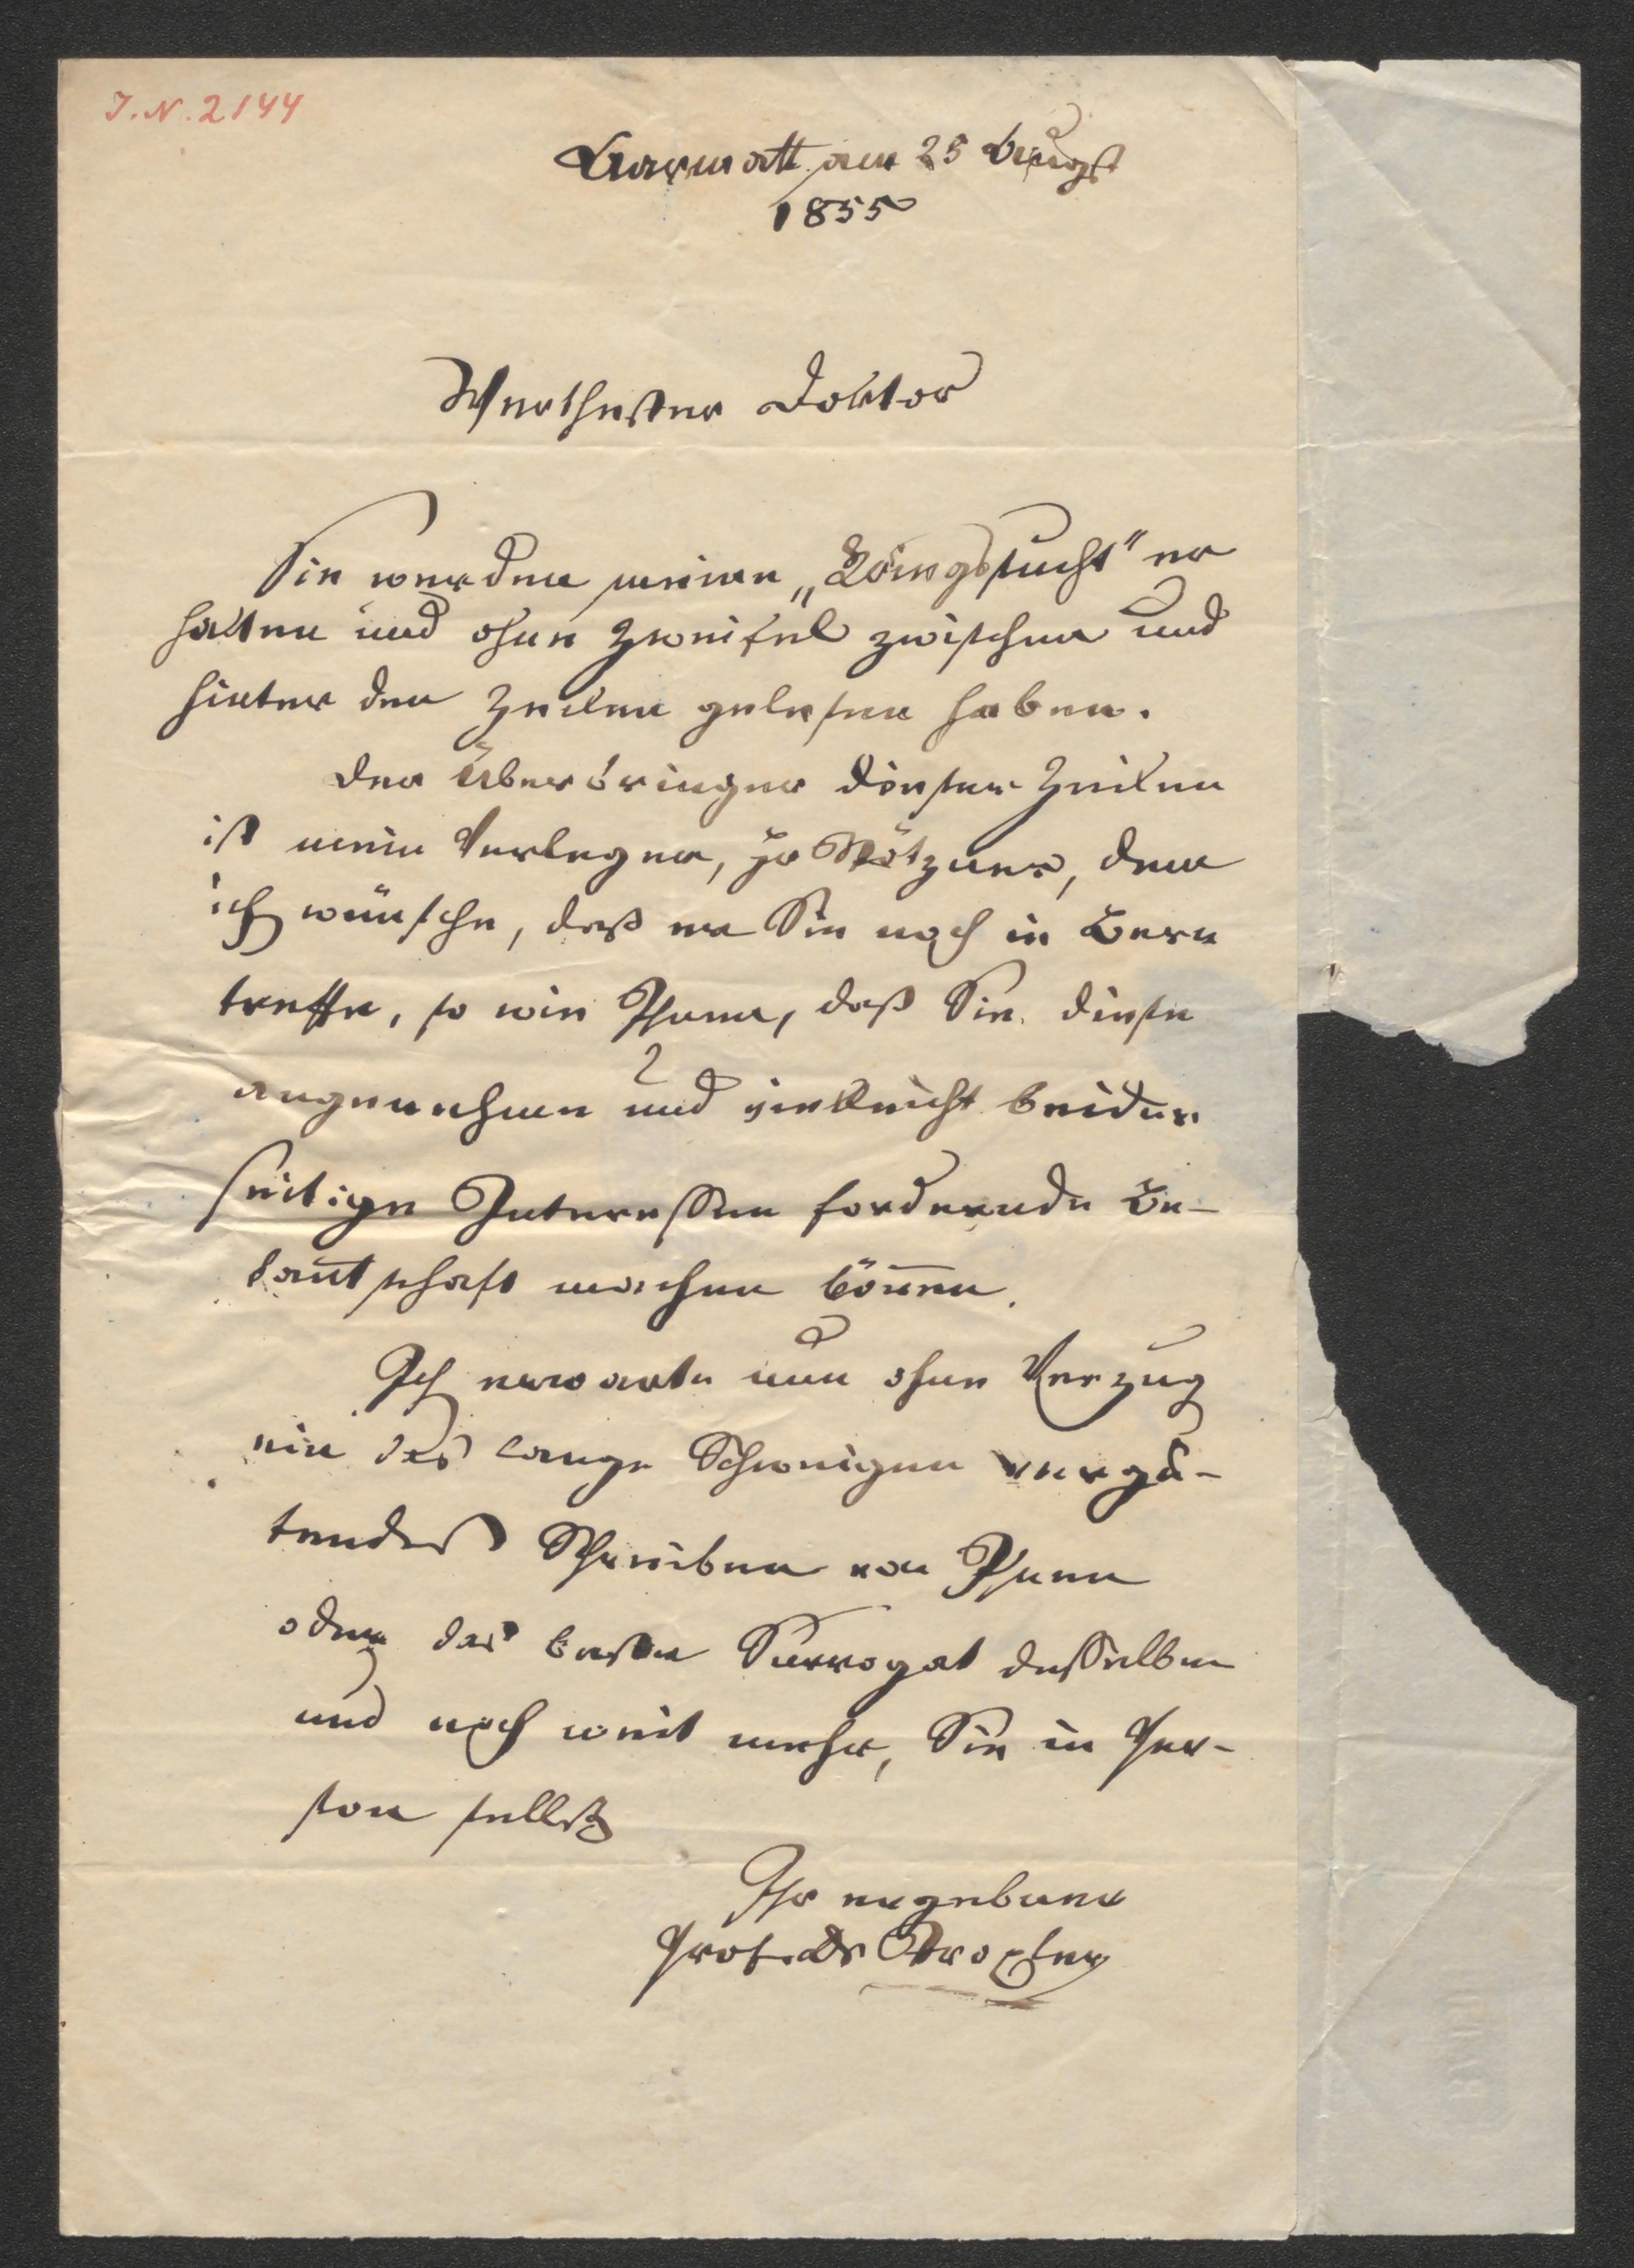 J. N. 2144
Aarmatt am 25 August
1855
Werthester Doktor
Sie werden meine „Königssucht" er
halten und ohne Zweifel zwischen und
hinter den Zeilen gelesen haben.
Der Überbringer dieser Zeilen
ist mein Verleger, Hr Nötzner, dem
ich wünsche, daß er Sie noch in Bern
treffe, so wie Ihnen, daß Sie diese
angenehme und vielleicht beider
seitige Interessen fordernde Be-
kantschaft machen können.
Ich erwarte nun ohne Verzug
ein das lange Schweigen vergü-
tendes Schreiben von Ihnen
oder das beste Surrogat desselben
und noch weit mehr, Sie in Per-
son selbst
Ihr ergebene
Prof. Dr Troxler